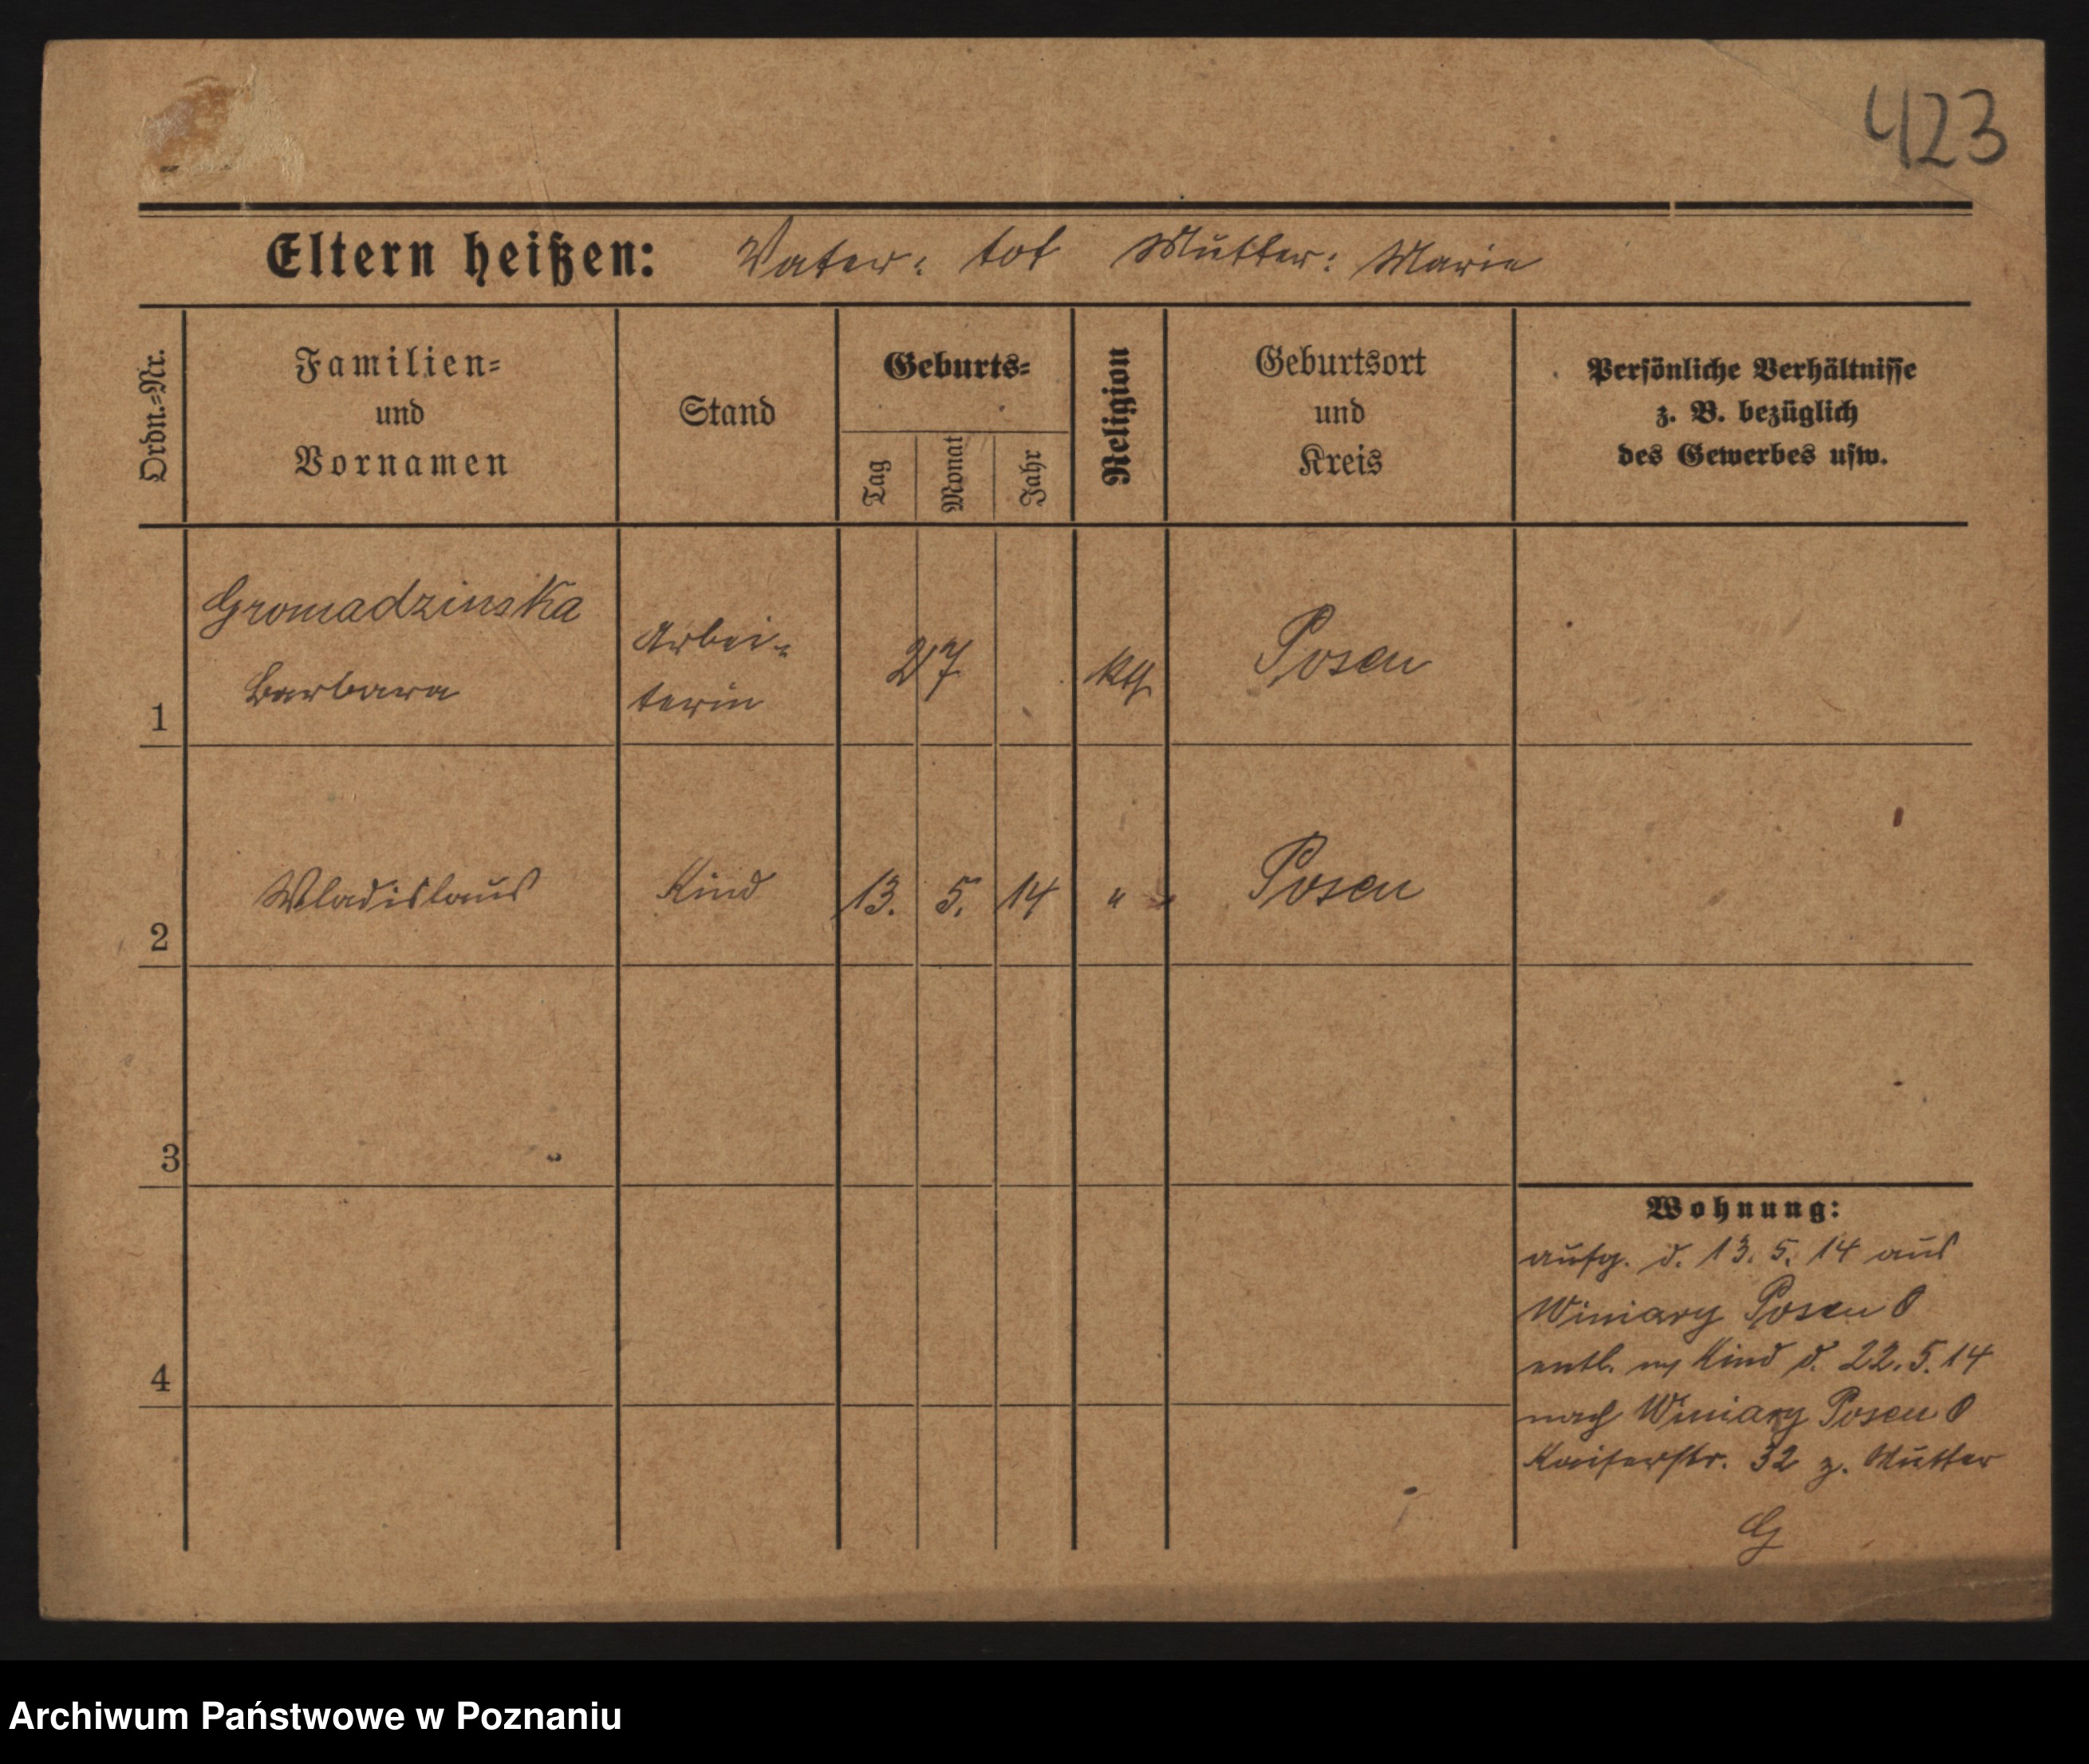 423
Eltern heißen: Vater: tot Mutter: Marie
Ordn.=Nr.
Familien=
und
Vornamen
Stand
Geburts=
Tag
Monat
Jahr
Religion
Geburtsort
und
Kreis
Persönliche Verhältnisse
z. B. bezüglich
des Gewerbes usw.
1
Gromadzinska
Barbara
Arbei=
terin
27
kth
Posen
2
Wladislaus
Kind
13. 5. 14
"
Posen
3
4
Wohnung:
aufg. d. 13. 5. 14 aus
Winiary Posen O
entl. m Kind d. 22. 5. 14
nach Winiary Posen O
Kaiserstr. 32 z. Mutter
G
Archiwum Państwowe w Poznaniu